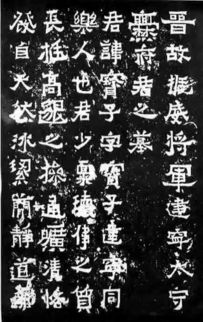 晉故振威將軍建寧太守
爨府君之墓
君諱寶子字寶子建寧同
樂人也君少稟瓌偉之質
長挺高邈之操通曠清恪
發自天然冰絜簡靜道